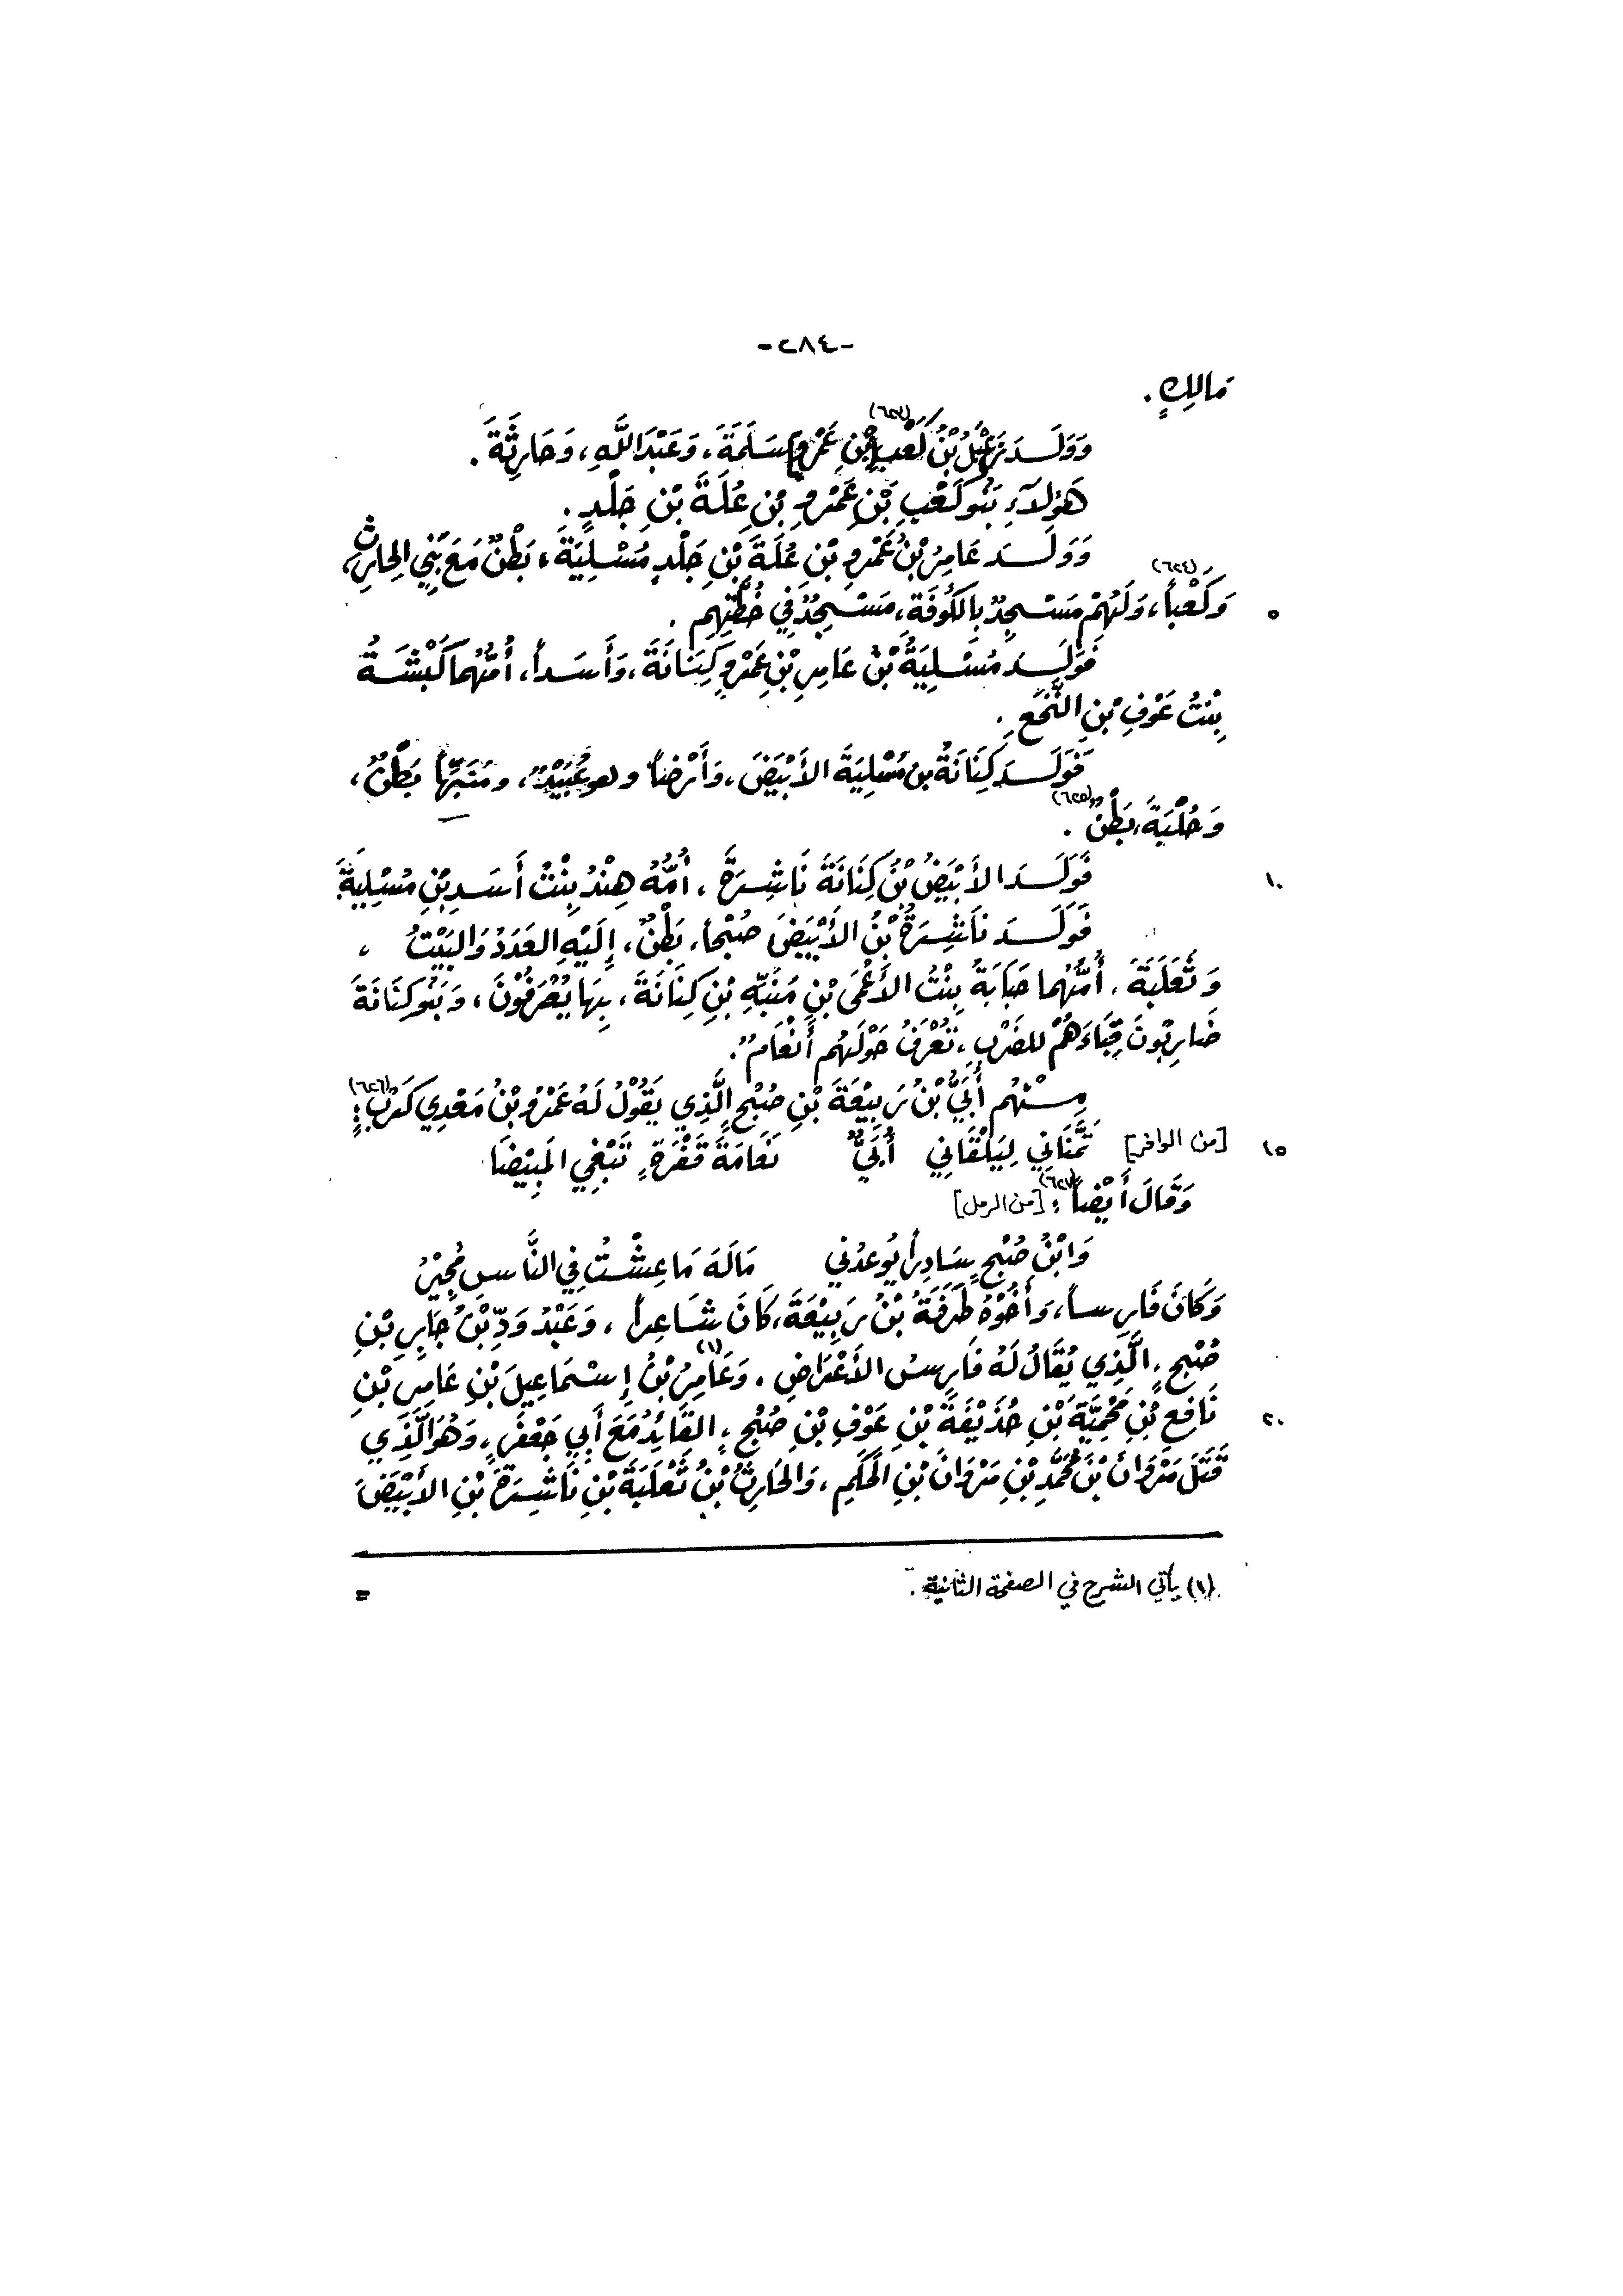 -٢٨٤-
مَالِكٍ .
وَوَلَـدَ زَعْبَلُ بْنُ كَعْبِ [بْنِ عَمْرٍو] سَلَمَةَ ، وَعَبْدَ اللَّهِ ، وَحَارِثَةَ .
هَؤلَاءِ بَنُو كَعْبِ بْنِ عَمْرِو بْنِ عُلَةَ بْنِ جَلْدٍ .
وَوَلَـدَ عَامِرُ بْنُ عَمْرِو بْنِ عُلَةَ بْنِ جَلْدٍ مُسْلِيَةَ ، بَطْنٌ مَعَ بَنِي الحَارِثِ ،
وَكَعْباً (٦٢٤) ، وَلَهُمْ مَسْجِدٌ بِالكُوفَةِ ، مَسْجِدٌ فِي خُطَّتِهِم . ٥
فَوَلَـدَ مُسْلِيَةُ بْنُ عَامِرِ بْنِ عَمْرٍو كِنَانَةَ ، وَأَسَـداً ، أُمُّهُمَا كَبْشَـةُ
بِنْتُ عَوْفِ بْنِ النَّخَعِ .
فَوَلَـدَ كِنَانَةُ بن مُسْلِيَةَ الأَبْيَضَ ، وَأَرْضاً وهو عُبَيْدٌ ، ومُنَبِّهاً بَطْنٌ ،
وَحُلْبَةَ ، بَطْنٌ (٦٢٥) .
فَوَلَـدَ الأَبْيَضُ بْنُ كِنَانَةَ نَاشِرَةَ ، أُمُّهُ هِنْدُ بِنْتُ أَسَـدِ بْنِ مُسْلِيَةَ . ١٠
فَوَلَـدَ نَاشِرَةُ بْنُ الأَبْيَضَ صُبْحاً ، بَطْنٌ ، إِلَيْهِ العَدَدُ وَالبَيْتُ ،
وَثَعْلَبَةَ ، أُمُّهُمَا حَبَابَةُ بِنْتُ الأَعْمَى بْنِ مُنَبِّهِ بْنِ كِنَانَةَ ، بِهَا يُعْرَفُوْنَ ، وَبَنُو كِنَانَةَ
ضَارِبُونَ قِبَاءَهُمْ للضَرْبِ ، تُعْرَفُ حَوْلَهُم أَنْعَامٌ .
مِنْهُم أُبَيُّ بْنُ رَبِيْعَةَ بْنِ صُبْحٍ الَّذِي يَقُوْلُ لَهُ عَمْرُو بْنُ مَعْدِي كَرَبٍ (٦٢٦) :
[من الوافر] تَمَنَّانِي لِيَلْقَانِي أُبَيٌّ نَعَامَةَ قَفْرَةٍ تَبْغِي المَبِيْضَا ١٥
وَقَالَ أَيْضاً (٦٢٧) : [من الرمل]
وَابْنُ صُبْحٍ سَادِراً يُوعِدُنِي مَالَهُ مَا عِشْتُ فِي النَّاسِ مُجِيْرُ
وَكَانَ فَارِسـاً ، وَأَخُوْهُ طَرَفَةُ بْنُ رَبِيْعَةَ ، كَانَ شَاعِراً ، وَعَبْدُ وَدِّ بْنُ جَابِرِ بْنِ
صُبْحٍ ، الَّذِي يُقَالُ لَهُ فَارِسُ الأَعْرَاضِ ، وَعَامِرُ (١) بْنُ إِسْمَاعِيلَ بْنِ عَامِرِ بْنِ
نَافِعِ بْنِ مَحْمِيَّةَ بْنِ حُذَيْفَةَ بْنِ عَوْفِ بْنِ صُبْحٍ ، القَائِدُ مَعَ أَبِي جَعْفَرٍ ، وَهُوَ الَّذِي ٢٠
قَتَلَ مَرْوَانَ بْنَ مُحَمَّدِ بْنِ مَرْوَانَ بْنِ الحَكَمِ ، وَالحَارِثُ بْنُ ثَعْلَبَةَ بْنِ نَاشِرَةَ بْنِ الأَبْيَضَ
(١) يأتي الشرح في الصفحة الثانية . =